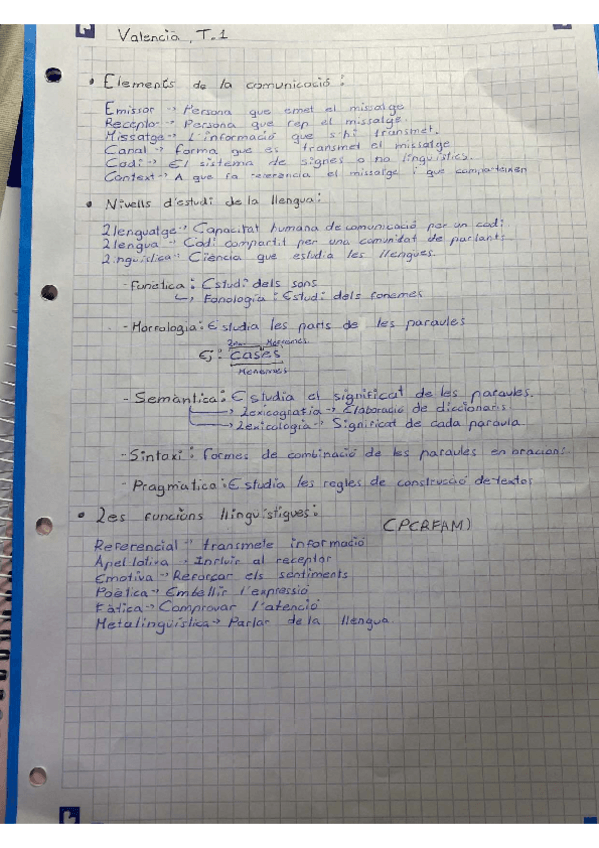 Valencià, T.1
• Elements de la comunicació:
Emissor → Persona que emet el missatge
Receptor → Persona que rep el missatge.
Missatge → L'informació que s'hi transmet.
Canal → forma que es transmet el missatge
Codi → El sistema de signes o no lingüístics.
Context → A que fa referència el missatge i que comparteixen
• Nivells d'estudi de la llengua:
Llenguatge → Capacitat humana de comunicació per un codi
Llengua → Codi compartit per una comunitat de parlants
Lingüística → Ciència que estudia les llengues.
- Funètica: Estudi dels sons
↳ Fonologia: Estudi dels fonemes
- Morfologia: Estudia les parts de les paraules
Ej: cases
- Semàntica: Estudia el significat de les paraules.
→ Lexicografia → Elaboració de diccionaris
→ Lexicologia → Significat de cada paraula
- Sintaxi: Formes de combinació de les paraules en oracions
- Pragmàtica: Estudia les regles de construcció de textos
• Les funcions llingüístiques:
Referencial → transmete informació
Apel·lativa → Incluir al receptor
Emotiva → Reforçar els sentiments
Poètica → Embellir l'expressió
Fàtica → Comprovar l'atenció
Metalingüística → Parlar de la llengua